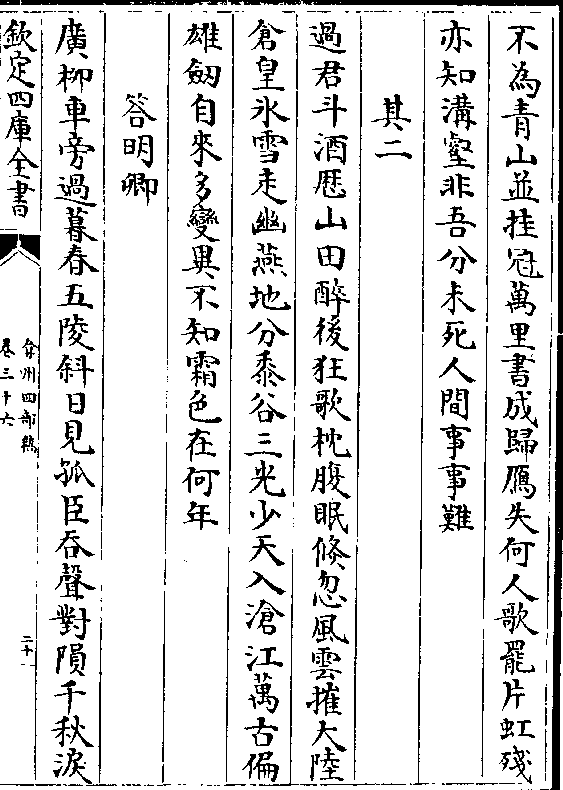 不為青山並挂冠萬里書成歸鴈失何人歌罷片虹殘
亦知溝壑非吾分未死人間事事難
其二
過君斗酒歷山田醉後狂歌枕腹眠倐忽風雲摧大陸
倉皇氷雪走幽燕地分黍谷三光少天入滄江萬古偏
雄劒自來多變異不知霜色在何年
答明卿
廣柳車旁過暮春五陵斜日見孤臣吞聲對隕千秋淚
欽定四庫全書
弇州四部稿
卷三十六
二十一